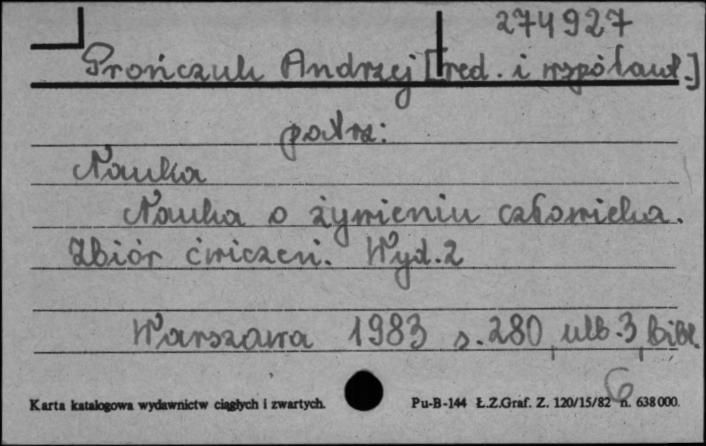 274927
Prończuk Andrzej [red. i współaut.]
patrz:
Nauka
Nauka o żywieniu człowieka.
Zbiór ćwiczeń. Wyd. 2
Warszawa 1983 s. 280, ulb. 3, bibl.
6
Karta katalogowa wydawnictw ciągłych i zwartych. Pu-B-144 Ł.Z.Graf. Z. 120/15/82 n. 638000.